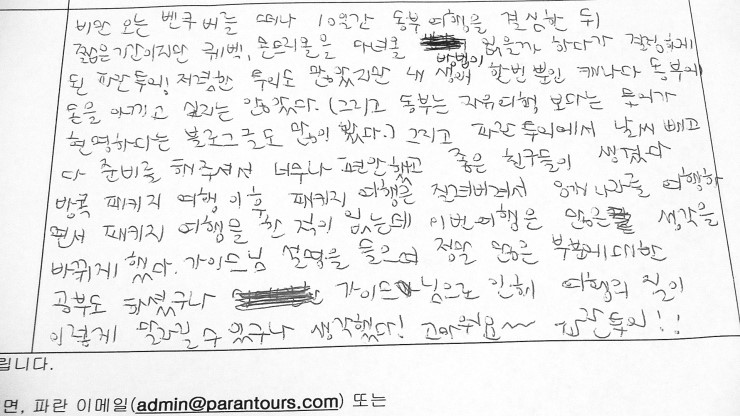 비만 오는 벤쿠버를 떠나 10일간 동부여행을 결심한 뒤
짧은기간이지만 퀘벡, 몬트리올을 다녀올 방법이 없을까 하다가 결정하게
된 파란투어! 저렴한 투어도 많았지만 내 생애 한번뿐인 캐나다 동부에
돈을 아끼고 싶지는 않았다. (그리고 동부는 자유여행 보다는 투어가
현명하다는 블로그글도 많이 봤다.) 그리고 파란투어에서 날씨 빼고
다 준비를 해주셔서 너무나 편안했고 좋은 친구들이 생겼다
방콕 패키지 여행 이후 패키지 여행은 여러나라를 여행하
면서 패키지 여행을 한 적이 없는데 이번여행은 많은 생각을
바뀌게 했다. 가이드님 설명을 들으며 정말 많은 부분에대한
공부도 하였구나 가이드님으로 인해 여행의 질이
이렇게 달라질 수 있구나 생각했다! 고마워요~~ 파란투어!!
립니다.
면, 파란 이메일(admin@parantours.com) 또는